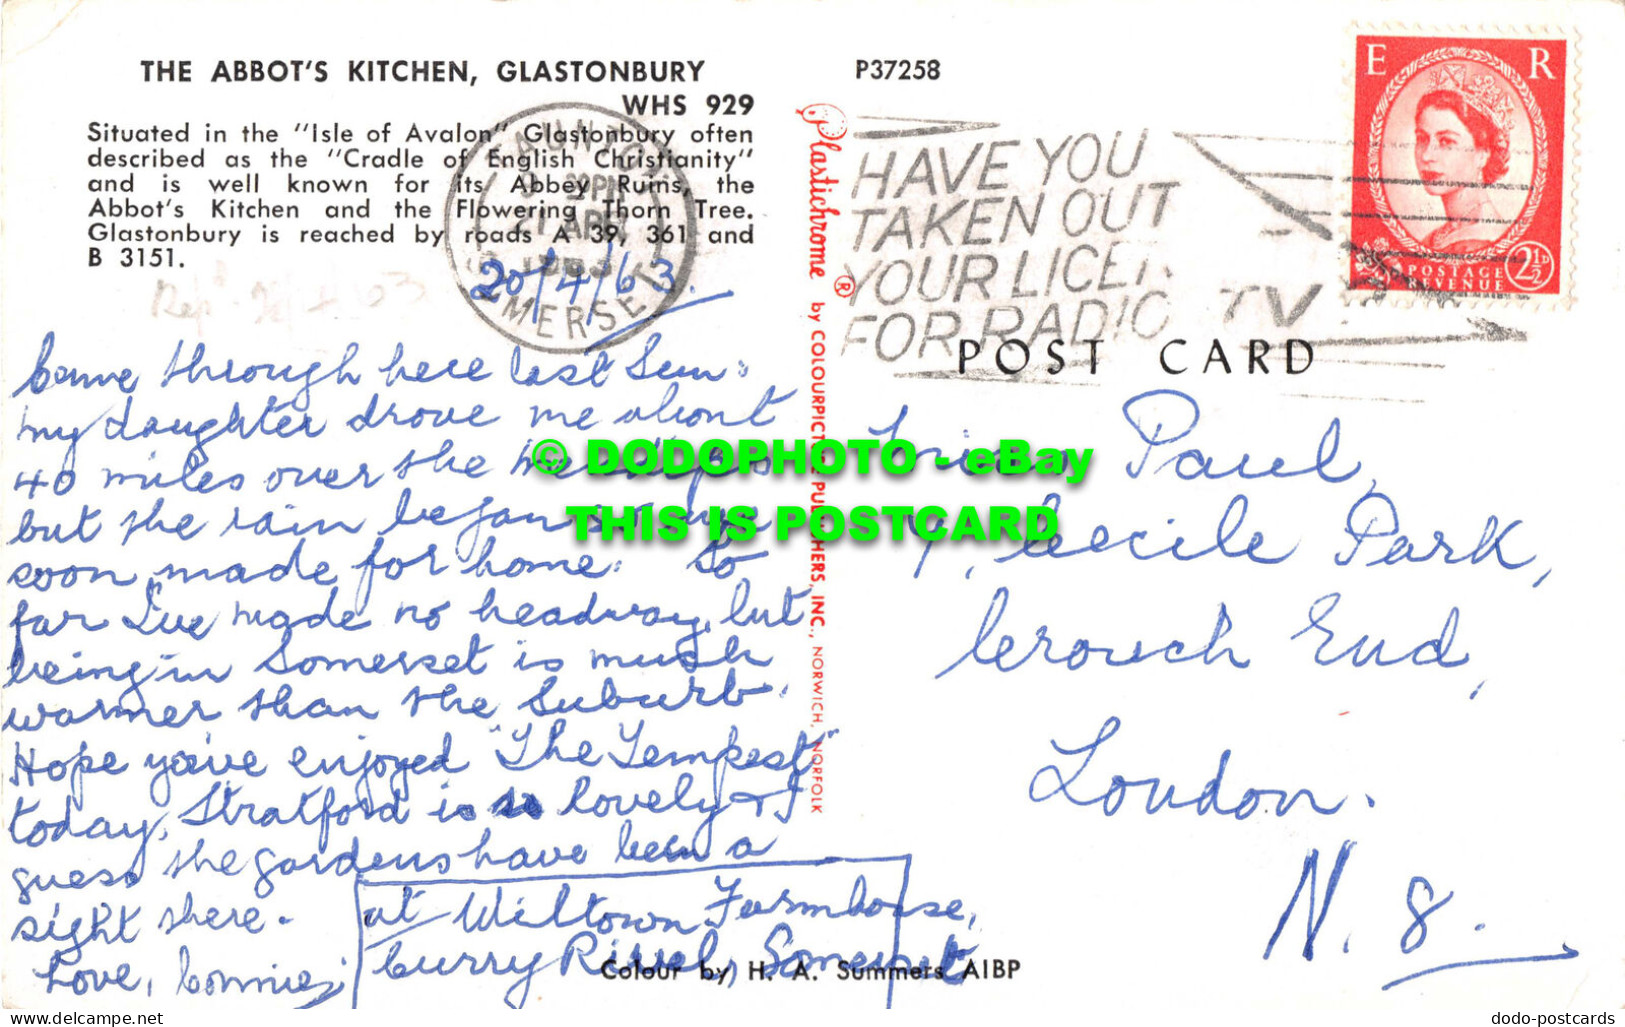 THE ABBOT'S KITCHEN, GLASTONBURY
WHS 929
Situated in the "Isle of Avalon" Glastonbury often
described as the "Cradle of English Christianity"
and is well known for its Abbey Ruins, the
Abbot's Kitchen and the Flowering Thorn Tree.
Glastonbury is reached by roads A 39, 361 and
B 3151.
P37258
TAUNTON
21 APR
1963
SOMERSET
20/4/63.
Came through here last Sun:
my daughter drove me about
40 miles over the
but the rain began so we
soon made for home. So
far I've made no headway, but
being in Somerset is much
warmer than the Suburb.
Hope you've enjoyed "The Tempest"
today, Stratford is so lovely & I
guess the gardens have been a
sight there.
Love, Connie.
at Wiltown Farmhouse,
Curry Rivel, Somerset
Plastichrome ® by COLOURPICTURE PUBLISHERS, INC., NORWICH, NORFOLK
HAVE YOU
TAKEN OUT
YOUR LICEN
FOR RADIO TV
E R
POSTAGE
REVENUE
2½D
POST CARD
Paul,
9, Cecile Park,
Crouch End,
London.
N. 8.
Colour by H. A. Summers AIBP
© DODOPHOTO - eBay
THIS IS POSTCARD
www.delcampe.net
dodo-postcards